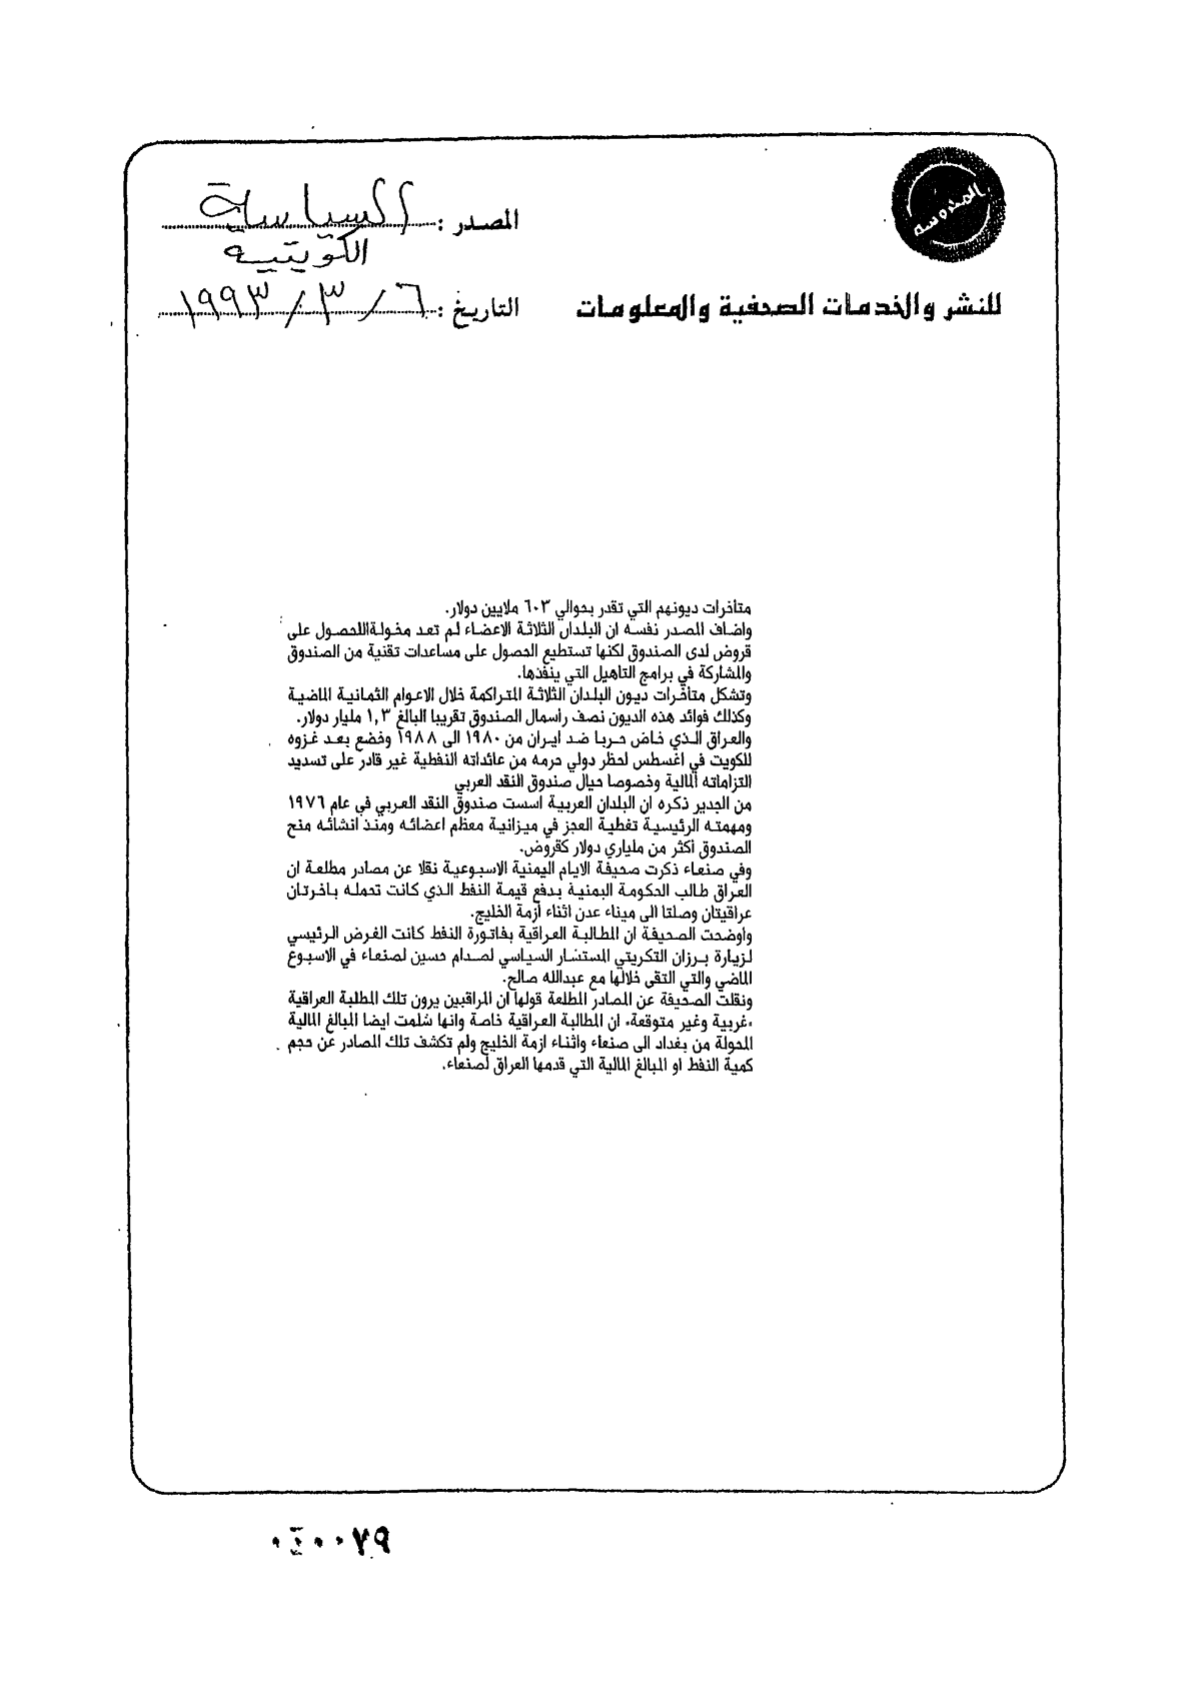 المدروسه
المصدر : السياسية
الكويتيه
للنشر والخدمات الصحفية والمعلومات
التاريخ : ٦ / ٣ / ١٩٩٣
متاخرات ديونهم التي تقدر بحوالي ٦٠٣ ملايين دولار.
واضاف المصدر نفسه ان البلدان الثلاثة الاعضاء لم تعد مخولةاللحصول على
قروض لدى الصندوق لكنها تستطيع الحصول على مساعدات تقنية من الصندوق
والمشاركة في برامج التاهيل التي ينفذها.
وتشكل متأخرات ديون البلدان الثلاثة المتراكمة خلال الاعوام الثمانية الماضية
وكذلك فوائد هذه الديون نصف رأسمال الصندوق تقريبا البالغ ١,٣ مليار دولار.
والعراق الذي خاض حربا ضد ايران من ١٩٨٠ الى ١٩٨٨ وخضع بعد غزوه
للكويت في اغسطس لحظر دولي حرمه من عائداته النفطية غير قادر على تسديد
التزاماته المالية وخصوصا حيال صندوق النقد العربي
من الجدير ذكره ان البلدان العربية اسست صندوق النقد العربي في عام ١٩٧٦
ومهمته الرئيسية تغطية العجز في ميزانية معظم اعضائه ومنذ انشائه منح
الصندوق اكثر من ملياري دولار كقروض.
وفي صنعاء ذكرت صحيفة الايام اليمنية الاسبوعية نقلا عن مصادر مطلعة ان
العراق طالب الحكومة اليمنية بدفع قيمة النفط الذي كانت تحمله باخرتان
عراقيتان وصلتا الى ميناء عدن اثناء أزمة الخليج.
واوضحت الصحيفة ان المطالبة العراقية بفاتورة النفط كانت الغرض الرئيسي
لزيارة برزان التكريتي المستشار السياسي لصدام حسين لصنعاء في الاسبوع
الماضي والتي التقى خلالها مع عبدالله صالح.
ونقلت الصحيفة عن المصادر المطلعة قولها ان المراقبين يرون تلك المطلبة العراقية
«غربية وغير متوقعة» ان المطالبة العراقية خاصة وانها شلمت ايضا المبالغ المالية
المحولة من بغداد الى صنعاء واثناء ازمة الخليج ولم تكشف تلك المصادر عن حجم
كمية النفط او المبالغ المالية التي قدمها العراق لصنعاء.
٠٤٠٠٧٩